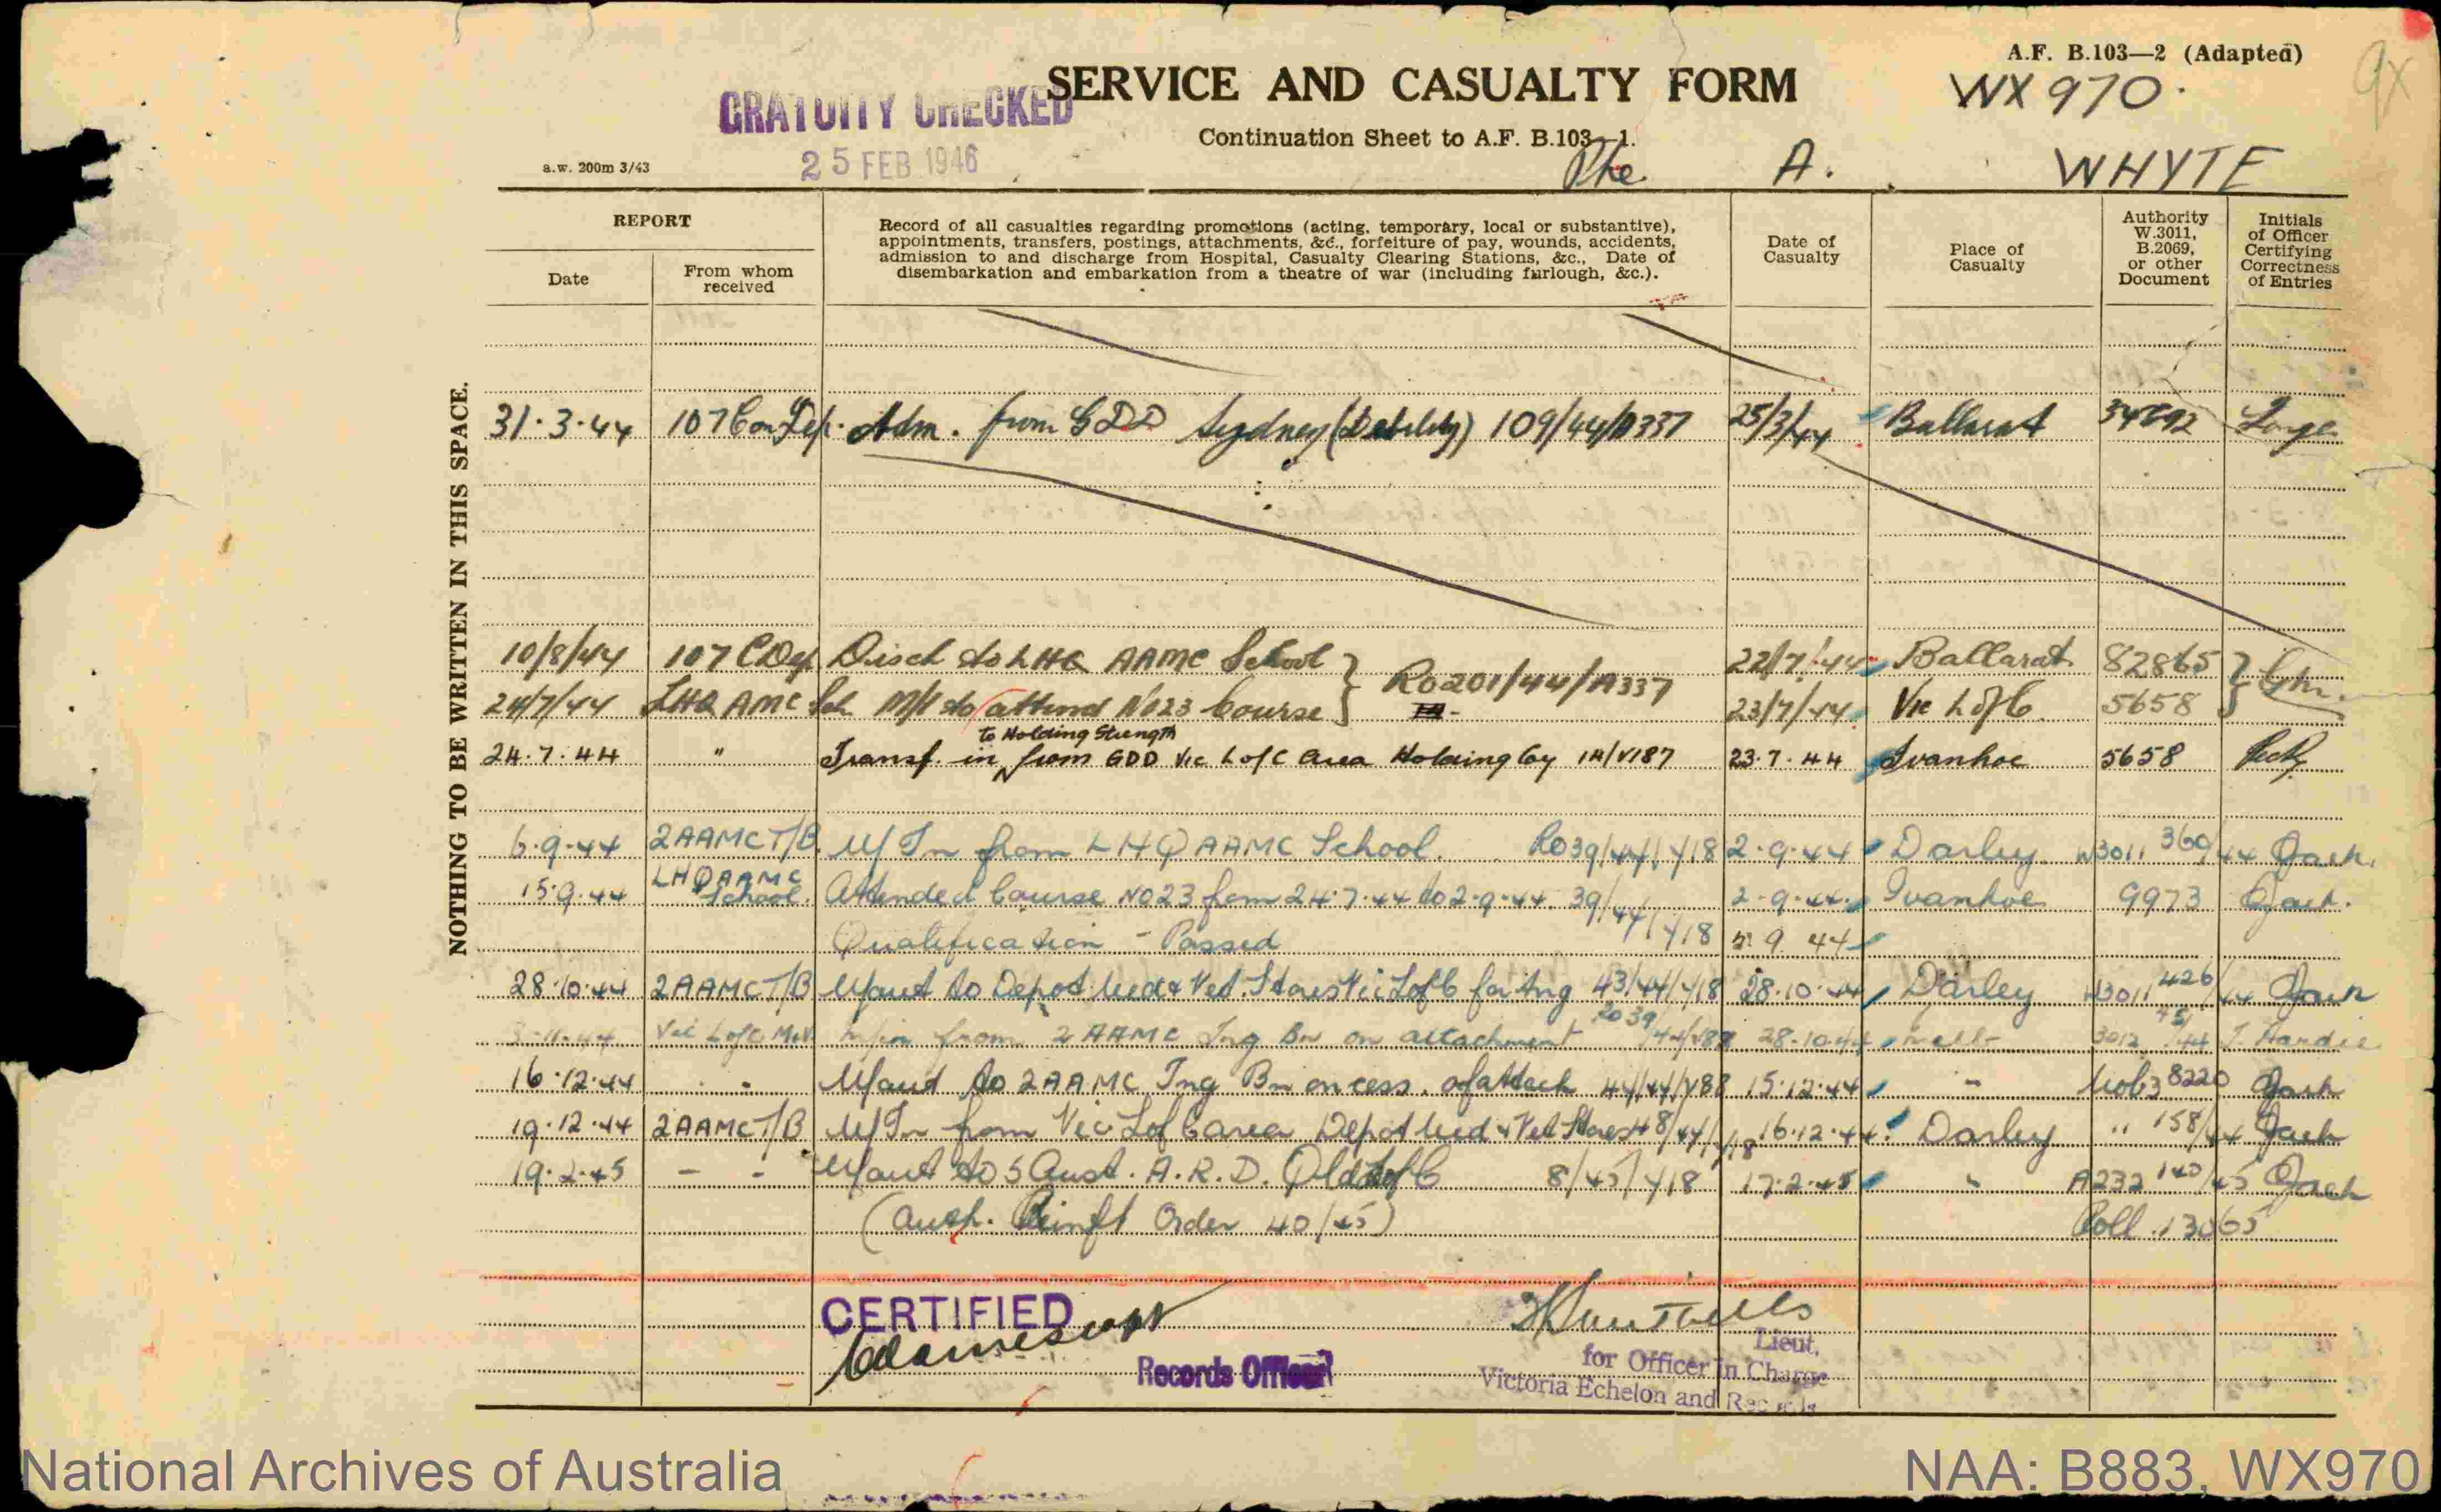 A.F. B.103—2 (Adapted)
SERVICE AND CASUALTY FORM
WX 970.
9X
GRATUITY CHECKED
Continuation Sheet to A.F. B.103—1.
25 FEB 1946
a.w. 200m 3/43
Pte A. WHYTE
NOTHING TO BE WRITTEN IN THIS SPACE.
REPORT
Date
From whom received
Record of all casualties regarding promotions (acting, temporary, local or substantive),
appointments, transfers, postings, attachments, &c., forfeiture of pay, wounds, accidents,
admission to and discharge from Hospital, Casualty Clearing Stations, &c., Date of
disembarkation and embarkation from a theatre of war (including furlough, &c.).
Date of Casualty
Place of Casualty
Authority W.3011, B.2069, or other Document
Initials of Officer Certifying Correctness of Entries
31.3.44 107 Con Dep. Adm. from GDD Sydney (Debility) 109/44/A337 25/3/44 Ballarat
10/8/44 107 C Dep Disch to LHQ AAMC School 22/7/44 Ballarat 82865
24/7/44 LHQ AMC Sch M/I to attend No23 Course RO201/44/A337 23/7/44 Vic L of C 5658
to Holding Strength
24.7.44 " Transf. in from GDD Vic L of C Area Holding Coy 1A/V187 23.7.44 Ivanhoe 5658
6.9.44 2AAMC T/B M/In from LHQ AAMC School. RO39/44/Y18 2.9.44 Darley W3011 360/44
15.9.44 LHQ AAMC School. Attended Course No23 from 24.7.44 to 2.9.44. 39/44/Y18 2-9-44 Ivanhoe 9973
Qualification - Passed 9.44
28.10.44 2AAMC T/B M/out to Depot Med & Vet. Stores Vic L of C for tng 43/44/Y18 28.10.44 Darley W3011 426/44
3-11-44 Vic L of C M&V M/in from 2 AAMC Tng Bn on attachment RO39/44/V88 28.10.44 Melb 3012 J. Hardie
16.12.44 M/out to 2AAMC Tng Bn on cess. of attach 44/44/V88 15.12.44 " 8220
19.12.44 2AAMC T/B M/In from Vic L of C area Depot Med & Vet Stores 48/44/Y18 16.12.44 Darley " 158/44
19.2.45 M/out to 5 Aust. A.R.D. Qld L of C 8/45/Y18 17.2.45 " A232 140/45
(Auth. Reinft Order 40/45) Roll 13065
CERTIFIED
Records Officer
Lieut.
for Officer in Charge
Victoria Echelon and Records
National Archives of Australia
NAA: B883, WX970